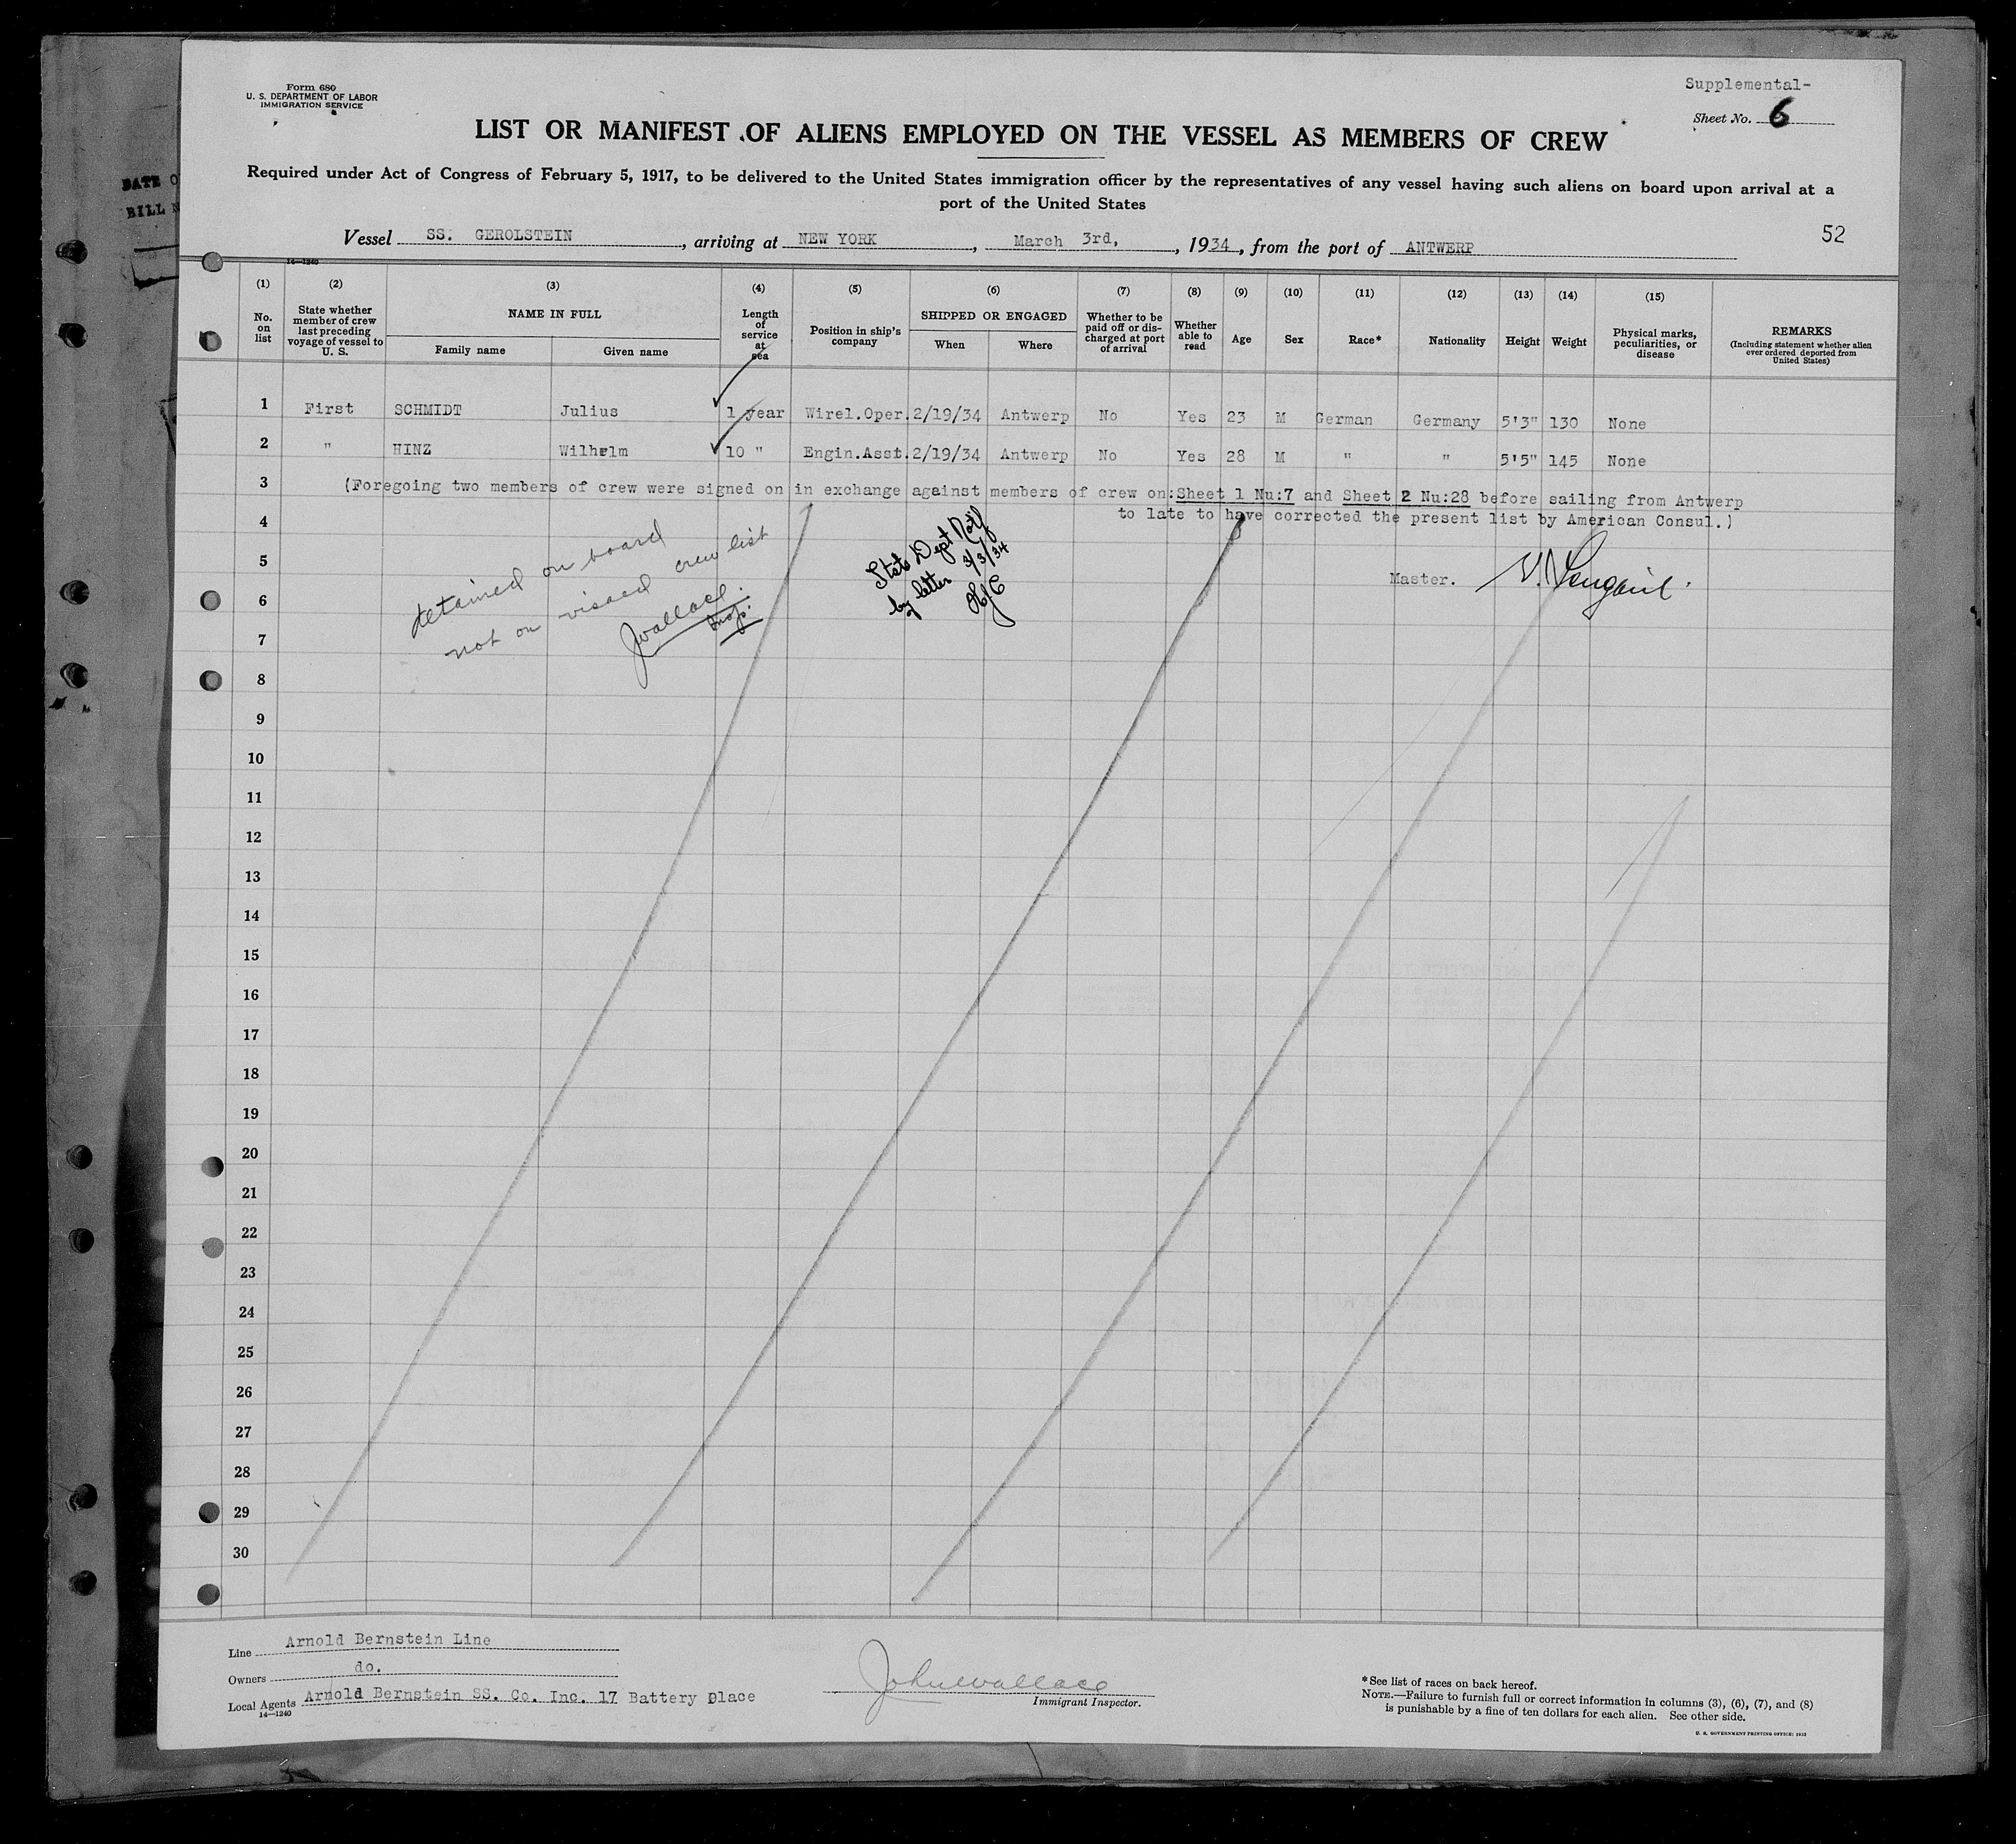 Form 680
U. S. DEPARTMENT OF LABOR
IMMIGRATION SERVICE
Supplemental-
Sheet No. 6
LIST OR MANIFEST OF ALIENS EMPLOYED ON THE VESSEL AS MEMBERS OF CREW
Required under Act of Congress of February 5, 1917, to be delivered to the United States immigration officer by the representatives of any vessel having such aliens on board upon arrival at a
port of the United States
DATE O
BILL N
Vessel SS. GEROLSTEIN, arriving at NEW YORK, March 3rd, , 1934, from the port of ANTWERP
52
14—1240
(1) (2) (3) (4) (5) (6) (7) (8) (9) (10) (11) (12) (13) (14) (15)
No. on list
State whether member of crew last preceding voyage of vessel to U. S.
NAME IN FULL
Family name Given name
Length of service at sea
Position in ship's company
SHIPPED OR ENGAGED
When Where
Whether to be paid off or discharged at port of arrival
Whether able to read
Age
Sex
Race*
Nationality
Height
Weight
Physical marks, peculiarities, or disease
REMARKS
(Including statement whether alien ever ordered deported from United States)
1 First SCHMIDT Julius 1 year Wirel.Oper. 2/19/34 Antwerp No Yes 23 M German Germany 5'3" 130 None
2 " HINZ Wilhelm 10 " Engin.Asst. 2/19/34 Antwerp No Yes 28 M " " 5'5" 145 None
3 (Foregoing two members of crew were signed on in exchange against members of crew on:Sheet 1 Nu:7 and Sheet 2 Nu:28 before sailing from Antwerp
4 to late to have corrected the present list by American Consul.)
detained on board
not on visaed crew list
JWallace.
Insp.
State Dept Notf
by letter 3/3/34
Master.
5
6
7
8
9
10
11
12
13
14
15
16
17
18
19
20
21
22
23
24
25
26
27
28
29
30
Line Arnold Bernstein Line
Owners do.
Local Agents Arnold Bernstein SS. Co. Inc. 17 Battery place
14—1240
John Wallace
Immigrant Inspector.
*See list of races on back hereof.
NOTE.—Failure to furnish full or correct information in columns (3), (6), (7), and (8)
is punishable by a fine of ten dollars for each alien. See other side.
U. S. GOVERNMENT PRINTING OFFICE: 1932